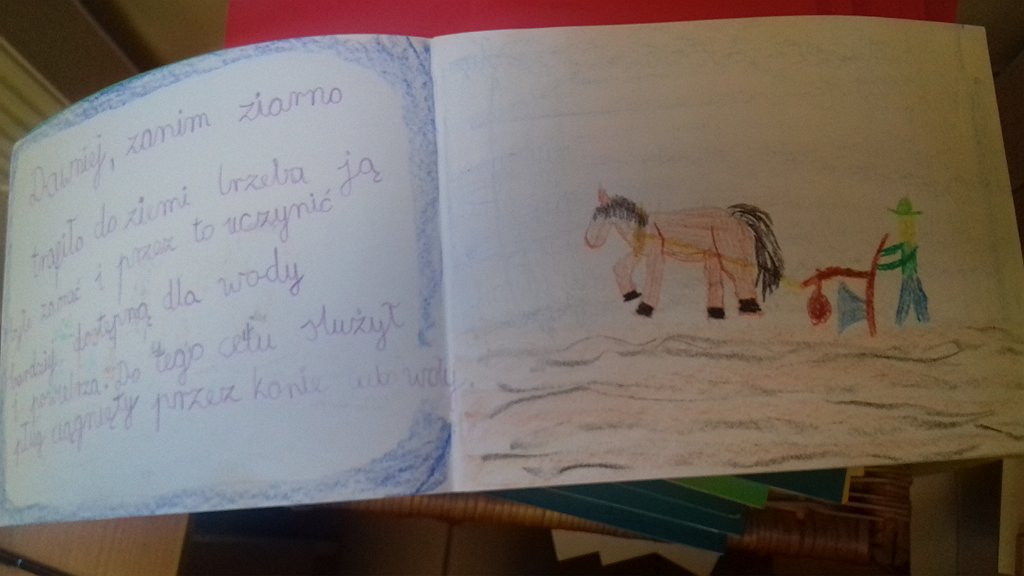 Dawniej, zanim ziarno
trafiło do ziemi trzeba ją
było zaorać i przez to uczynić
bardziej dostępną dla wody
i powietrza. Do tego celu służył
pług ciągnięty przez konie lub woły.